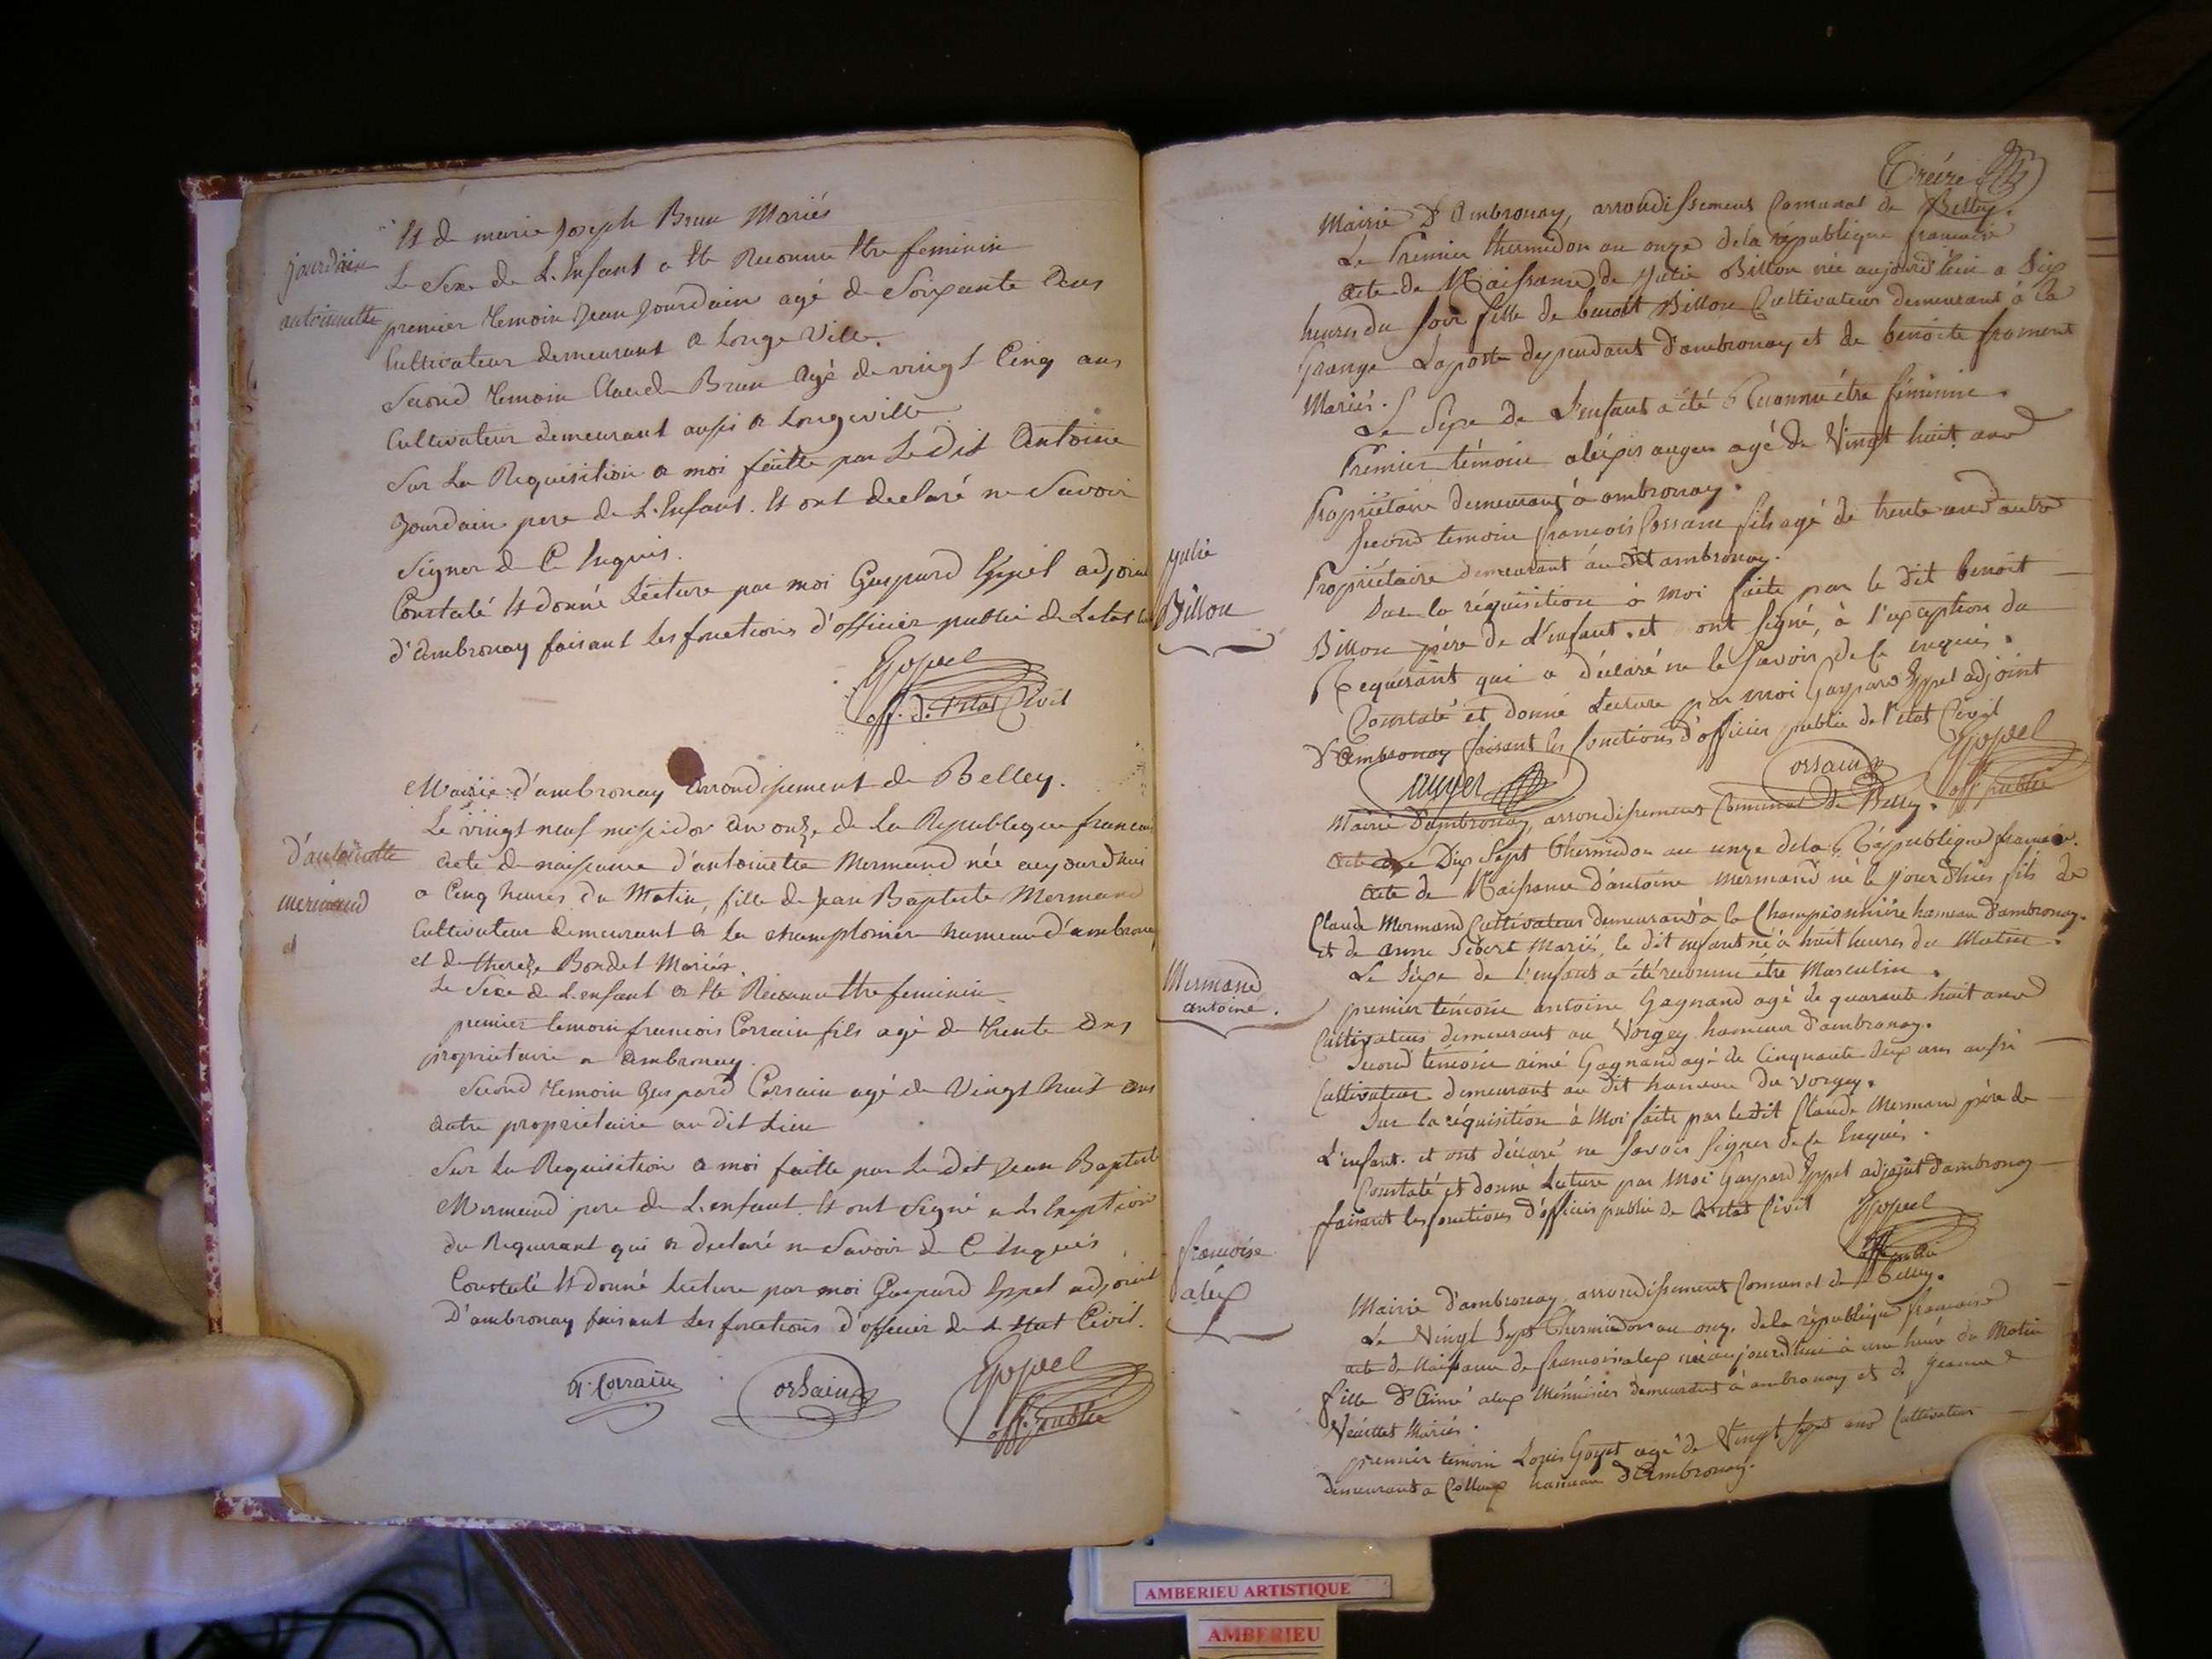 Et de marie Joseph Brun Mariés
jourdain
antoinette
Le Sexe de L'Enfant a Ete Reconnu Etre feminin
premier temoin Jean Jourdain agé de Soixante Ans
Cultivateur demeurant a Longe Ville.
Second temoin Claude Brun Agé de vingt Cinq ans
Cultivateur demeurant aussi a Longeville
Sur La Requisition a moi faitte par Le Dit Antoine
Jourdain pere de L'Enfant. Et ont declaré ne Savoir
Signer de Ce Enquis.
Constaté Et donné Lecture par moi Gaspard Eppel adjoint
d'ambronay faisant les fonctions d'officier public de Letat
Eppel
off. de l'Etat Civil
Mairie d'ambronay arrondissement de Belley.
Le vingt neuf messidor an onze de La Republique
d'antoinette
mermand
et
acte de naissance d'antoinette Mermand née aujourdhui
a Cinq heures du Matin, fille de Jean Baptiste Mermand
Cultivateur demeurant a la hameau d'ambronay
et de thereze Bondet Mariés.
Le Sexe de L'enfant a Ete Reconnu Etre feminin
premier temoin francois Corrain fils agé de trente Ans
proprietaire a Ambronay.
Second temoin Gaspard Corrain agé de Vingt huit ans
autre proprietaire au dit Lieu
Sur La Requisition a moi faitte par Le Dit Jean Baptiste
Mermand pere de L'enfant. Et ont Signé a L'exception
du Requerant qui a declaré ne Savoir de Ce Enquis
Constaté Et donné Lecture par moi Gaspard Eppel adjoint
D'ambronay faisant Les fonctions d'officier de L'Etat Civil.
Corrain
Corsain
Eppel
off. public
Treize
Mairie D'Ambronay, arrondissement Comunal de Belley.
Le Premier thermidor an onze de la république francaise
acte de Naissance de Julie Billon née aujourd'hui a Six
heures du soir fille de benoit Billon Cultivateur demeurant à la
Grange Laposte dependant d'ambronay et de benoite froment
Mariés.
Le Sexe de L'enfant a été Reconnu être féminin.
Premier témoin aléxis auger agé de Vingt huit ans
Propriétaire demeurant à ambronay.
Second temoin francois Corsain fils agé de trente ans autre
Propriétaire demeurant au dit ambronay.
julie
Billon
Sur la réquisition à moi faite par le dit benoit
Billon père de L'enfant. et ont signé, à l'exception du
Requérant qui a déclaré ne le savoir de ce enquis.
Constaté et donné Lecture par moi Gaspard Eppel adjoint
D'Ambronay faisant les fonctions d'officier public de l'etat Civil
auger
Corsain
Eppel
off public
Mairie d'ambronay, arrondissement Comunal de Belley.
Le Dix Sept thermidor an onze de la République
acte de Naissance d'antoine mermand né le jourd'hui fils de
Claude Mermand Cultivateur demeurant à la Championnière hameau d'ambronay.
et de anne Sibert Mariés, le dit enfant né à huit heures du Matin.
Le Sexe de l'enfant a été reconnu être Masculin.
Mermand
antoine.
premier témoin antoine Gagnand agé de quarante huit ans
Cultivateur demeurant au Vorgey hameau d'ambronay.
Second témoin aimé Gagnand agé de Cinquante deux ans aussi
Cultivateur demeurant au dit hameau du Vorgey.
Sur la réquisition à Moi faite par le dit Claude Mermand père de
L'enfant. et ont déclaré ne savoir signer de ce Enquis.
Constaté et donné Lecture par Moi Gaspard Eppel adjoint d'ambronay
faisant les fonctions d'officier public de L'etat Civil
Eppel
off public
francoise
alex
Mairie d'ambronay arrondissement Comunal de Belley.
Le Vingt Sept thermidor an onze de la république francaise
acte de Naissance de francoise alex née aujourd'hui à une heure du Matin
fille D'Aimé alex Ménusier demeurant à ambronay et de jeanne
Mariés.
premier temoin Louis Goyet agé de Vingt Sept ans Cultivateur
demeurant a Colloux hameau d'Ambronay.
AMBERIEU ARTISTIQUE
AMBERIEU